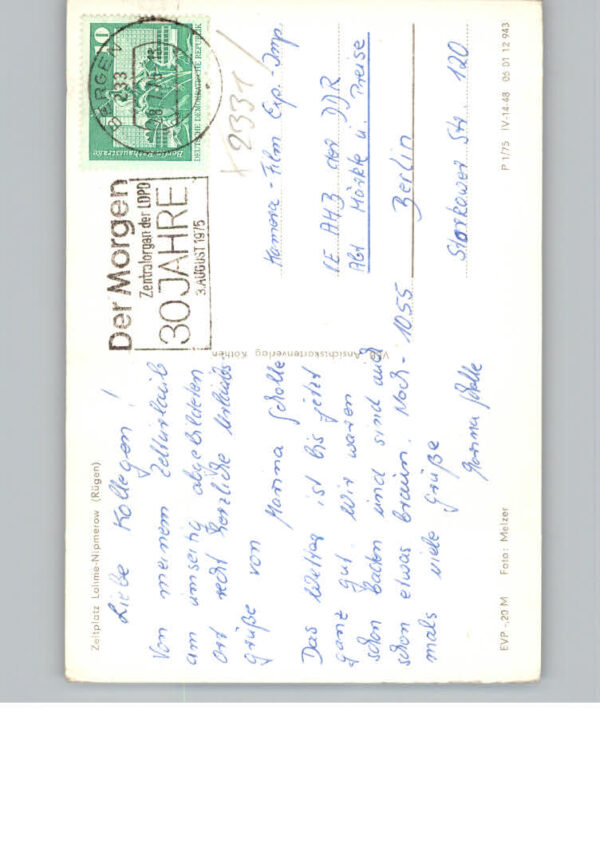 Zeltplatz Lohme-Nipmerow (Rügen)
Liebe Kollegen!
Von meinem Zelturlaub
am umseitig abgebildeten
Ort recht herzliche Urlaubs
Grüße von Marina Scholle
Das Wetter ist bis jetzt
ganz gut. Wir waren
schon baden und sind auch
schon etwas braun. Noch-
mals viele Grüße
Marina Scholle
EVP -,20 M Foto: Melzer
VEB Ansichtskartenverlag Köthen
Der Morgen
Zentralorgan der LDPD
30 JAHRE
3. AUGUST 1975
BERGEN
233
10
DEUTSCHE DEMOKRATISCHE REPUBLIK
Berlin Rathausstraße
x 2331
Kamera-Film Exp.-Imp.
AHB der DDR
Abt Märkte u. Preise
1055 Berlin
Storkower Str. 120
P 1/75 IV-14-48 06 01 12 943